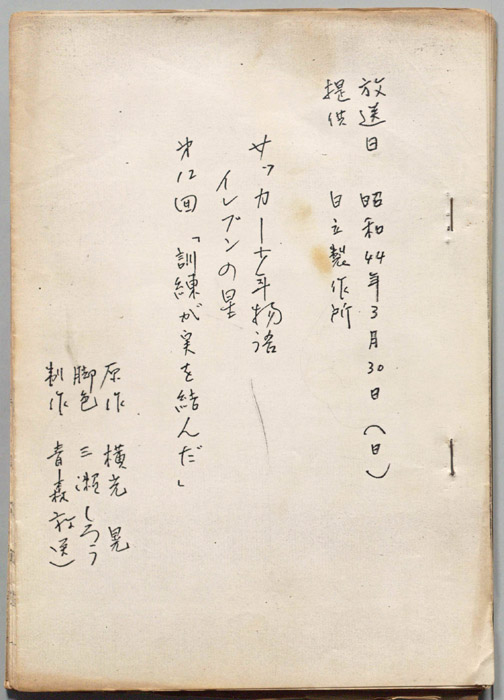 放送日 昭和44年3月30日(日)
提供 日立製作所
サッカー少年物語
イレブンの星
オ12回 「訓練が実を結んだ」
原作 横光 晃
脚色 三瀬しろう
制作 青森放送)